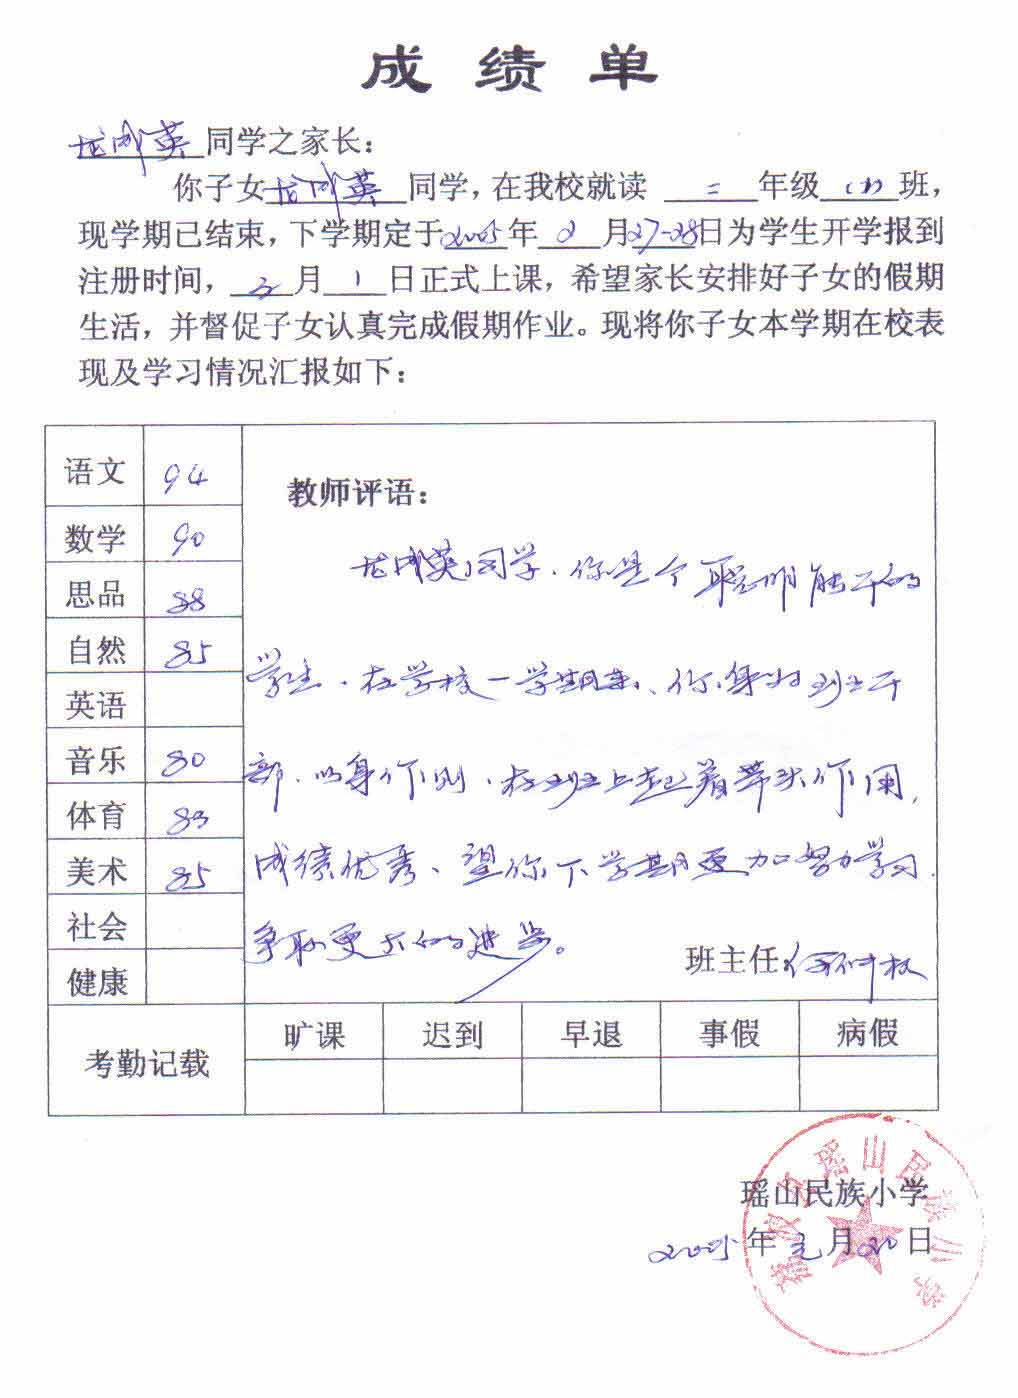 成绩单
龙成英同学之家长：
你子女龙成英同学，在我校就读 二 年级（1）班，
现学期已结束，下学期定于2005年 2 月27-28日为学生开学报到
注册时间，3月1日正式上课，希望家长安排好子女的假期
生活，并督促子女认真完成假期作业。现将你子女本学期在校表
现及学习情况汇报如下：
语文 94
数学 90
思品 88
自然 85
英语
音乐 80
体育 83
美术 85
社会
健康
教师评语：
龙成英同学、你是个聪明能干的
学生、在学校一学期来、你身为班干
部、以身作则、在班上起着带头作用，
成绩优秀、望你下学期更加努力学习，
争取更大的进步。
班主任：何
考勤记载 旷课 迟到 早退 事假 病假
瑶山民族小学
2005年元月20日
瑶山民族小学